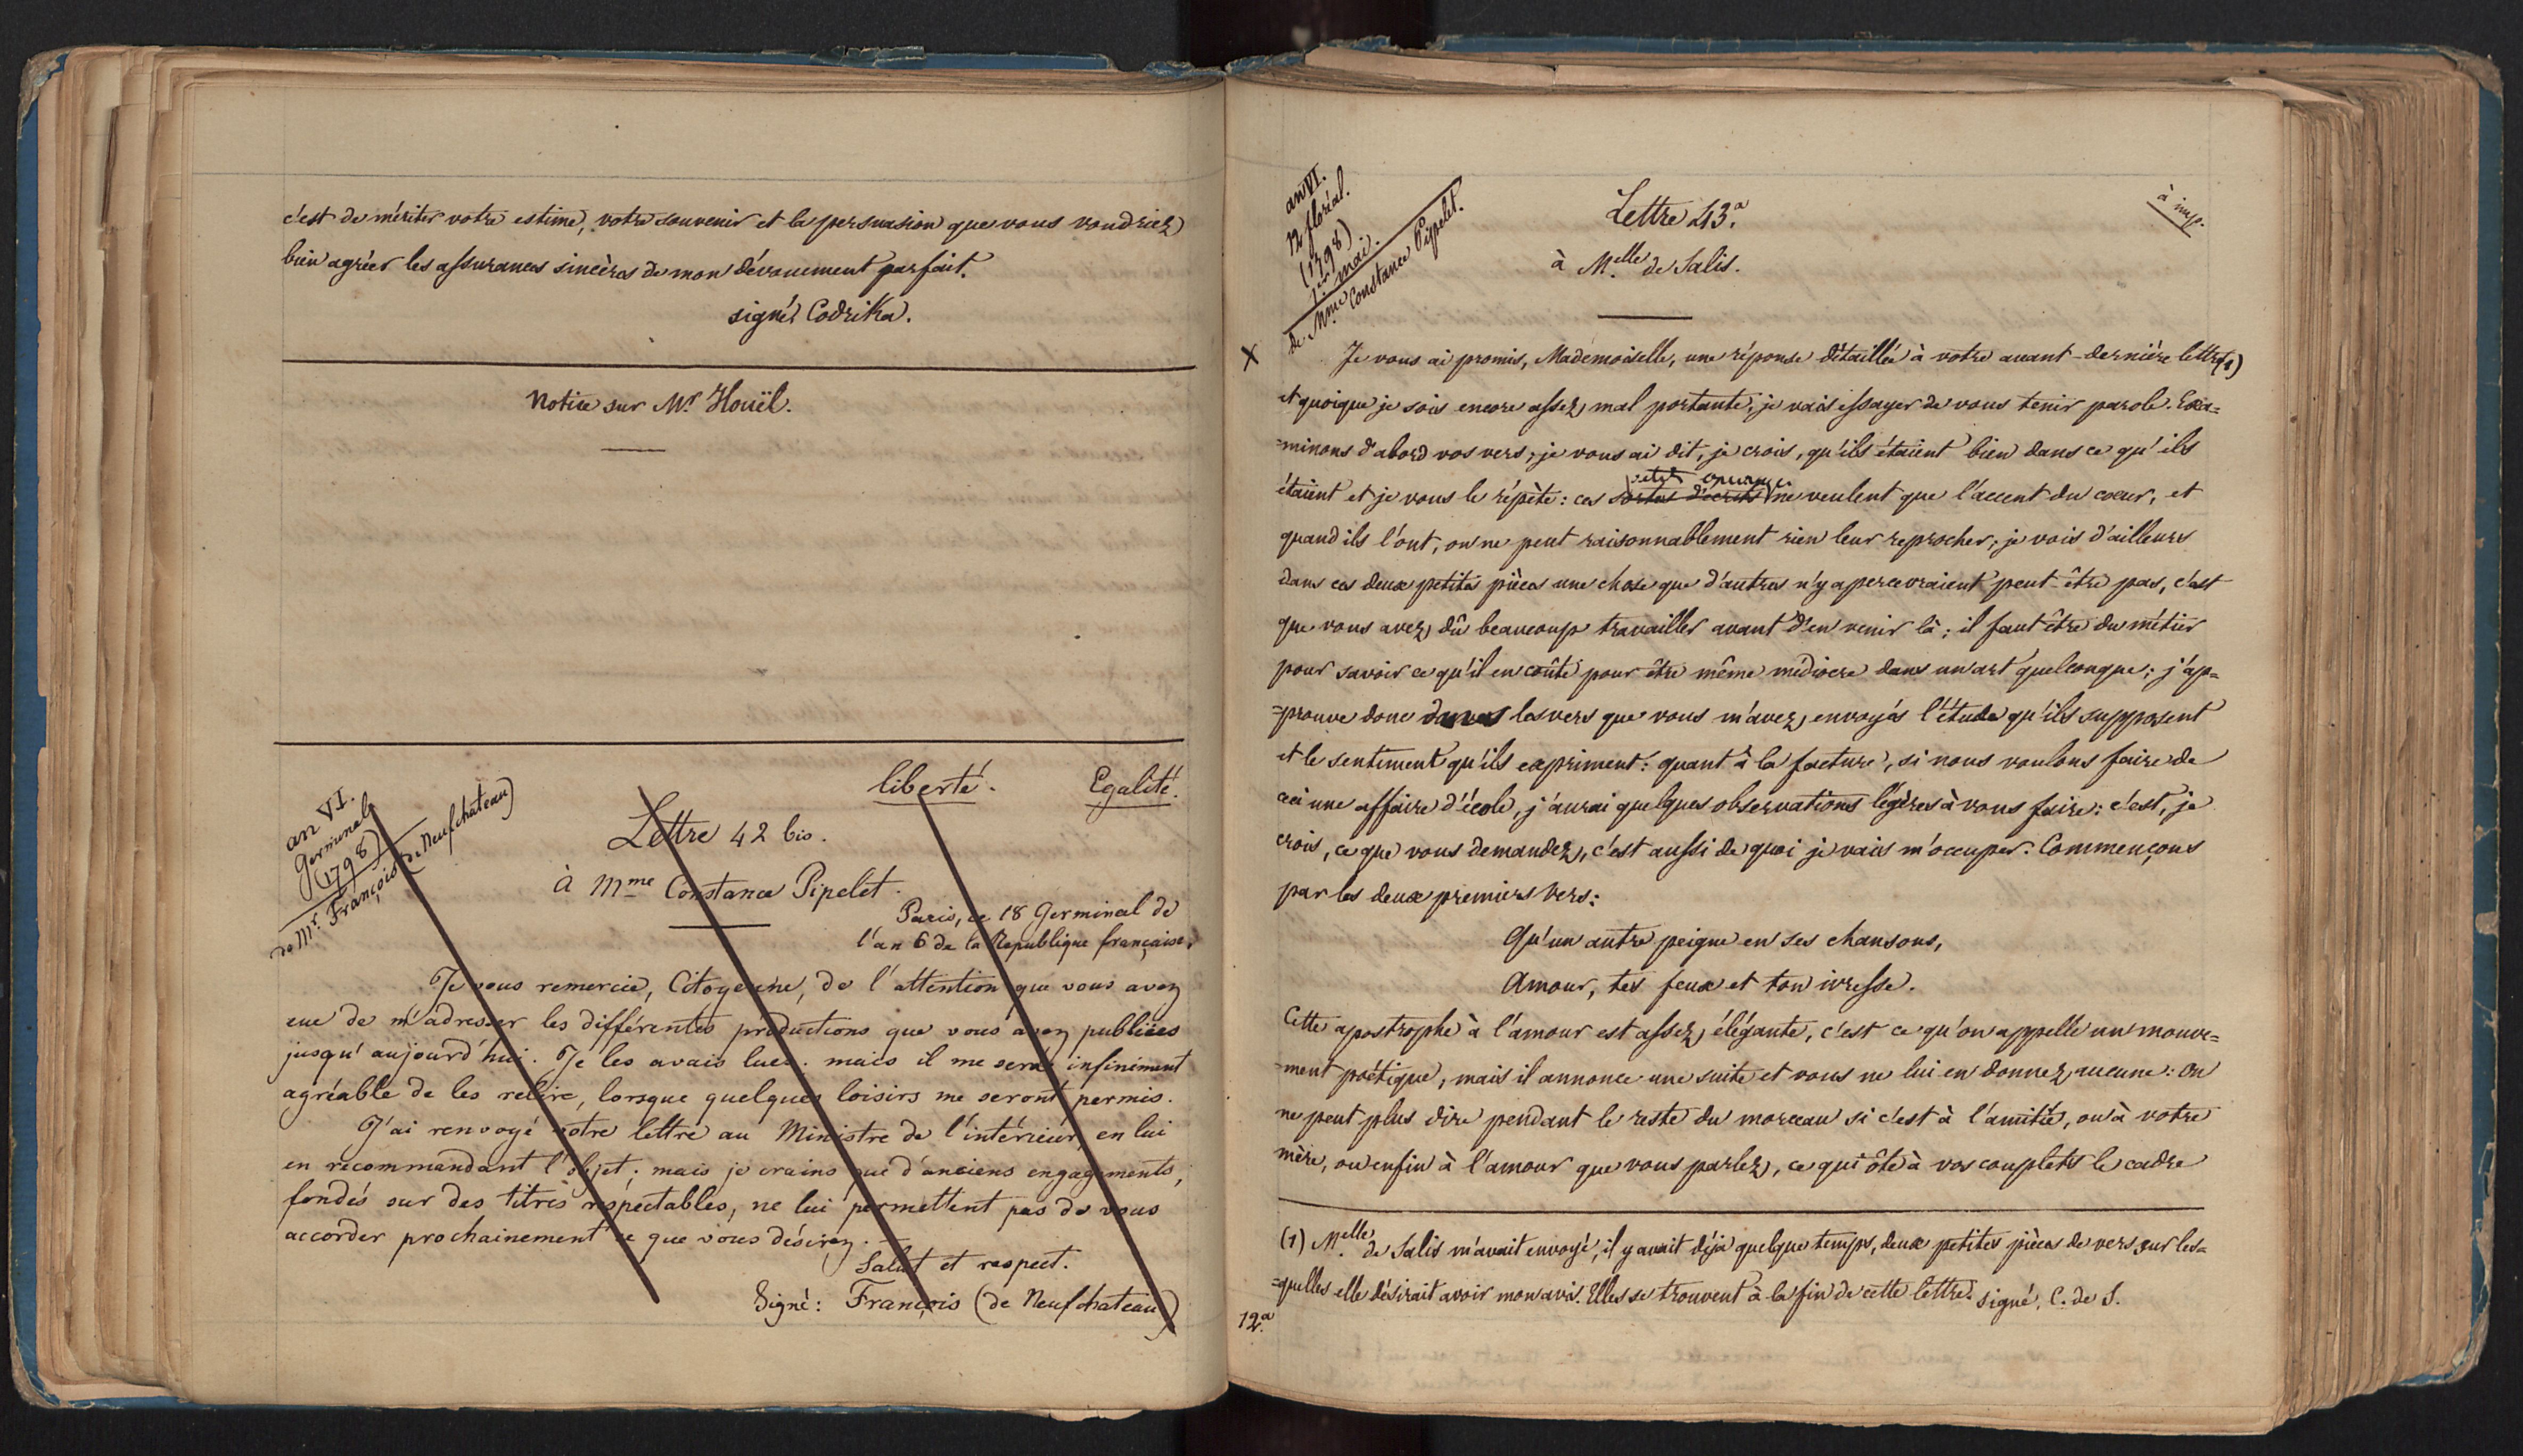 c'est de mériter votre estime, votre souvenir et la persuasion que vous voudriez
bien agréer les assurances sincères de mon dévouement parfait.
signé, Codrika.
Notice sur Mr. Houël.
liberté. Egalité.
an VI.
Germinal
(1798)
de Mr. François (de Neufchateau)
Lettre 42 bis.
à Mme Constance Pipelet.
Paris, ce 18 Germinal de
l'an 6 de la République française.
Je vous remercie, Citoyenne, de l'attention que vous avez
eue de m'adresser les différentes productions que vous avez publiées
jusqu'aujourd'hui. Je les avais lues; mais il me sera infiniment
agréable de les relire, lorsque quelques loisirs me seront permis.
J'ai renvoyé votre lettre au Ministre de l'intérieur, en lui
en recommandant l'objet; mais je crains que d'anciens engagements,
fondés sur des titres respectables, ne lui permettent pas de vous
accorder prochainement ce que vous désirez.
Salut et respect.
Signé: François (de Neufchateau)
an VI.
12 floréal.
(1798)
1er mai.
de Mme Constance Pipelet.
Lettre 43.a
à imp.
à Melle de Salis.
X
Je vous ai promis, Mademoiselle, une réponse détaillée à votre avant-dernière lettre (1)
et quoique je sois encore assez mal portante, je vais essayer de vous tenir parole. Exa=
=minons d'abord vos vers; je vous ai dit, je crois, qu'ils étaient bien dans ce qu'ils
étaient et je vous le répète: ces sortes d'écrits ne veulent que l'accent du cœur, et
quand ils l'ont, on ne peut raisonnablement rien leur reprocher; je vois d'ailleurs
dans ces deux petites pièces une chose que d'autres n'y apercevraient peut-être pas, c'est
que vous avez dû beaucoup travailler avant d'en venir là; il faut être du métier
pour savoir ce qu'il en coûte pour être même médiocre dans un art quelconque; j'ap=
=prouve donc dans les vers que vous m'avez envoyés l'étude qu'ils supposent
et le sentiment qu'ils expriment: quant à la facture, si nous voulons faire de
ceci une affaire d'école, j'aurai quelques observations légères à vous faire: c'est, je
crois, ce que vous demandez, c'est aussi de quoi je vais m'occuper. Commençons
par les deux premiers vers:
Qu'un autre peigne en ses chansons,
Amour, tes feux et ton ivresse.
Cette apostrophe à l'amour est assez élégante, c'est ce qu'on appelle un mouve=
=ment poétique, mais il annonce une suite et vous ne lui en donnez aucune: On
ne peut plus dire pendant le reste du morceau si c'est à l'amitié, ou à votre
mère, ou enfin à l'amour que vous parlez, ce qui ôte à vos couplets le cadre
(1) Melle de Salis m'avait envoyé, il y avait déjà quelque temps, deux petites pièces de vers sur les=
=quelles elle désirait avoir mon avis. Elles se trouvent à la fin de cette lettre. signé, C. de S.
12.a